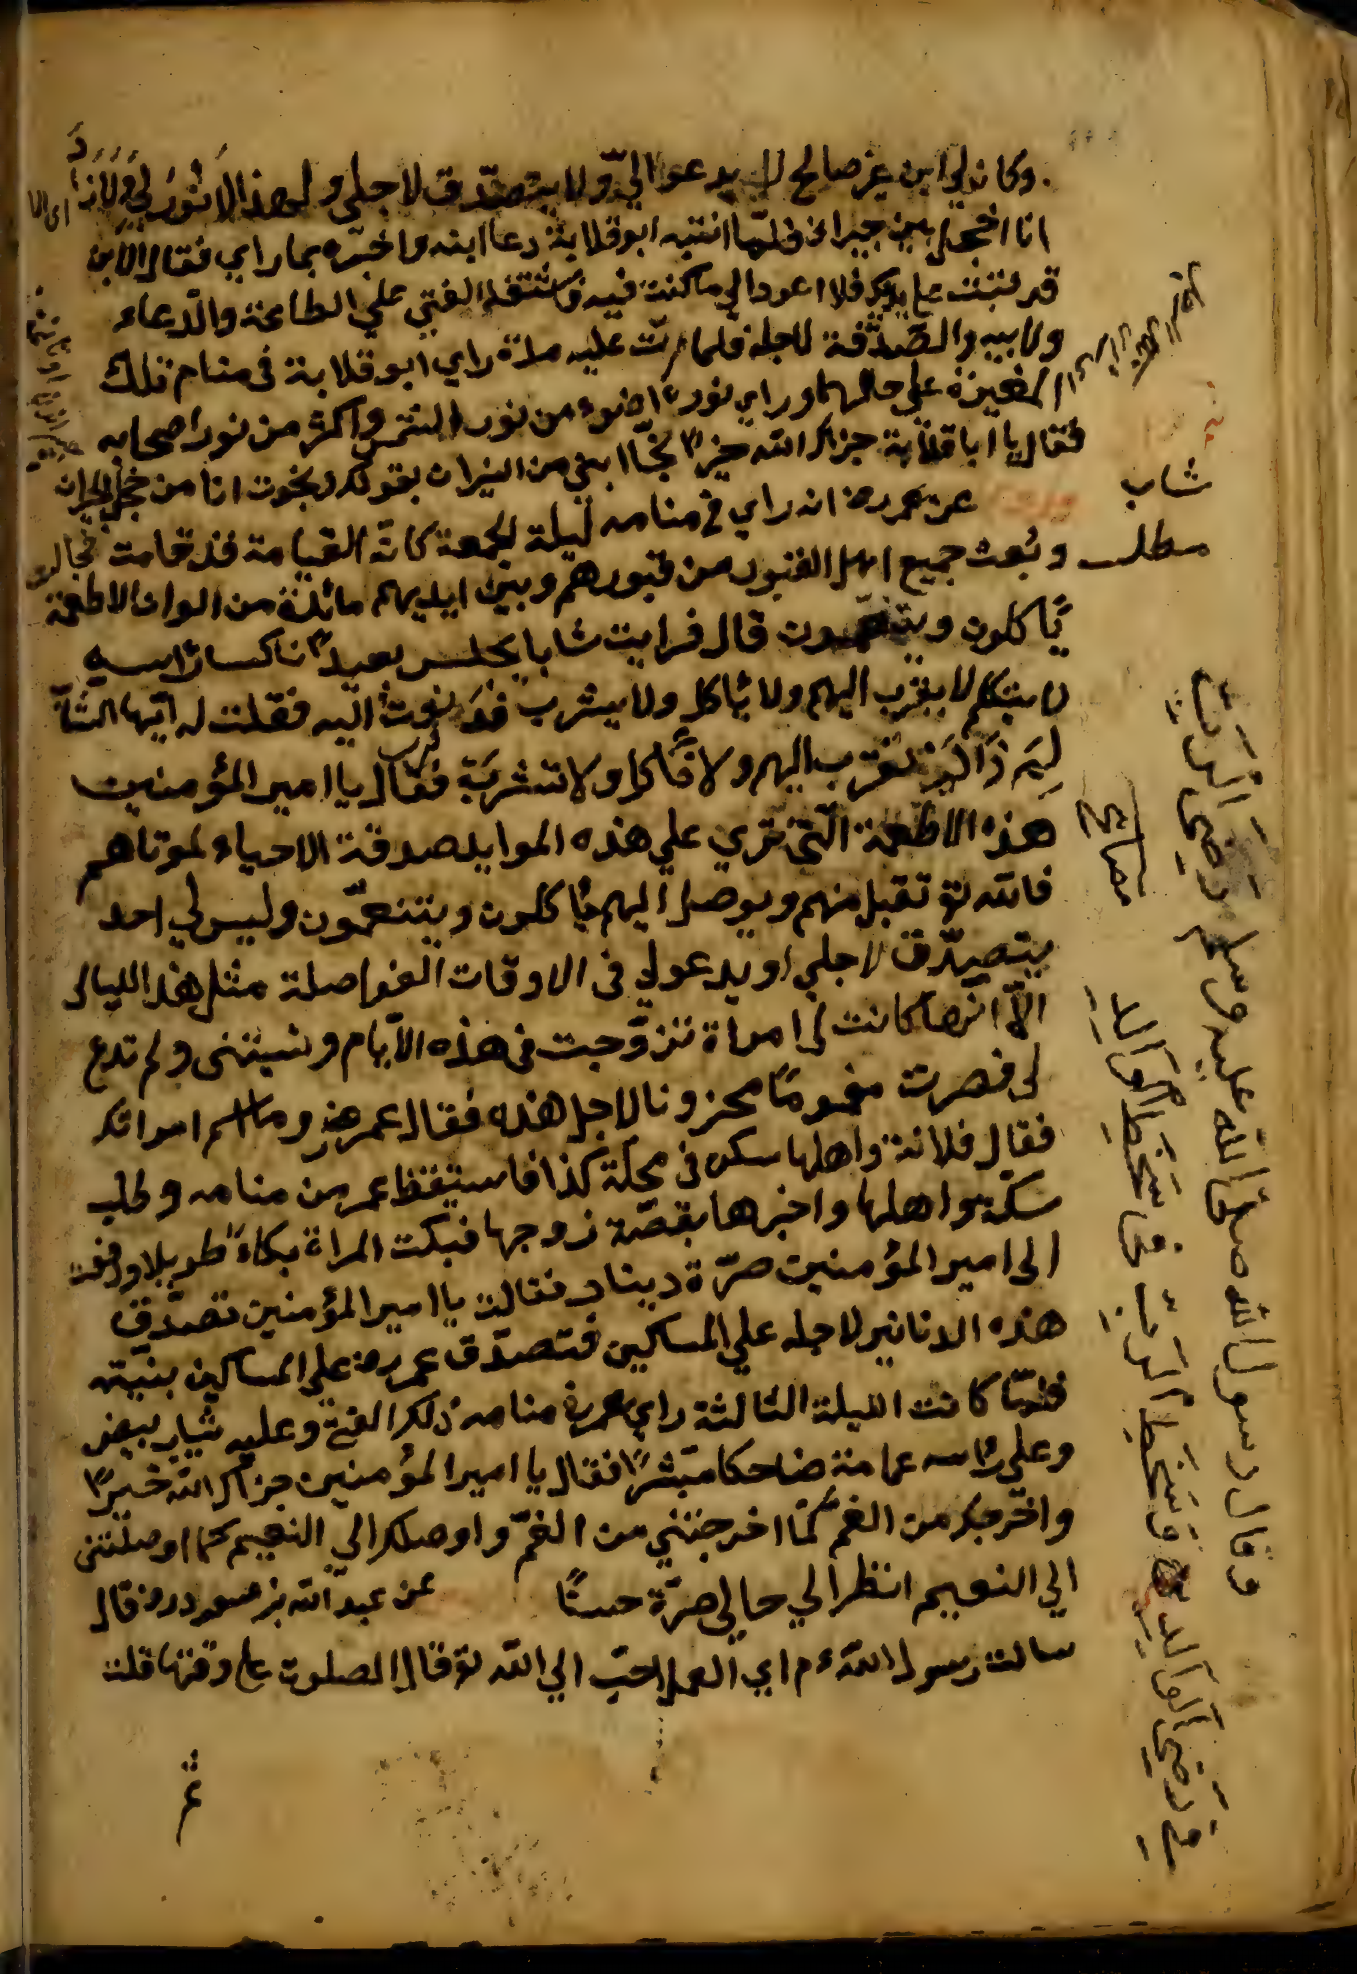 وكان لي ابن غير صالح لا يدعو الي ولا يتصدق لاجلي ولهذا لا نور لي ولانا
انا اخجل بين جيراني فلما انتبه ابو قلابة دعا ابنه واخبره بما راي فقال الابن
قد تبت علي يدك فلا اعود الي ما كنت فيه فاشتغل الفتي علي الطاعة والدعاء
ولابيه والصدقة لاجله فلما مرت عليه مدة راي ابو قلابة في منام تلك
المقبرة علي حالها وراي نورا اضوء من نور الشمس واكثر من نور اصحابه
فقال يا ابا قلابة جزاك الله خيرا نجا ابني من النيران بقولك ونجوت انا من خجل الجيران
عن عمر رض انه راي في منامه ليلة الجمعة كان القيامة قد قامت
وبعث جميع اهل القبور من قبورهم وبين ايديهم مائدة من الوان الاطعمة
ياكلون ويتنعمون قال فرايت شابا يجلس بعيدا ناكسا راسه
لا يتكلم لا يقرب اليهم ولا ياكل ولا يشرب فدنوت اليه فقلت له ايها الشاب
لم ذا لم تقرب اليهم ولا تاكل ولا تشرب فقال يا امير المؤمنين
هذه الاطعمة التي تري علي هذه الموايد صدقة الاحياء لموتاهم
فالله تع تقبل منهم ويوصل اليهم ياكلون ويتنعمون وليس لي احد
يتصدق لاجلي او يدعو لي في الاوقات الفواصلة مثل هذا الليالي
الا انها كانت لي امراة تزوجت في هذه الايام ونسيتني ولم تدع
لي فصرت مغموما محزونا لاجل هذه فقال عمر رض وما اسم امراتك
فقال فلانة واهلها سكن في محلة كذا فاستيقظ عمر من منامه وطلب
سكنه واهلها واخبرها بقصة زوجها فبكت المراة بكاء طويلا ودفعت
الي امير المؤمنين صرة دينار فقالت يا امير المؤمنين تصدق
هذه الدنانير لاجله علي المساكين فتصدق عمر رض علي المساكين بنيته
فلما كانت الليلة الثالثة راي عمر في منامه ذلك الفتي وعليه ثياب بيض
وعلي راسه عمامة ضاحكا مبشرا فقال يا امير المؤمنين جزاك الله خيرا
واخرجك من الغم كما اخرجتني من الغم واوصلك الي النعيم كما اوصلتني
الي النعيم انظر الي حالي صرة حسنا عن عبد الله بن مسعود رض قال
سالت رسول الله ءم اي العمل احب الي الله تع قال الصلوة علي وقتها قلت
ثم
شاب
مطلب
مصابيح
وقال رسول الله صلي الله عليه وسلم رضي الرب
في رضي الوالد وسخط الرب في سخط الوالد